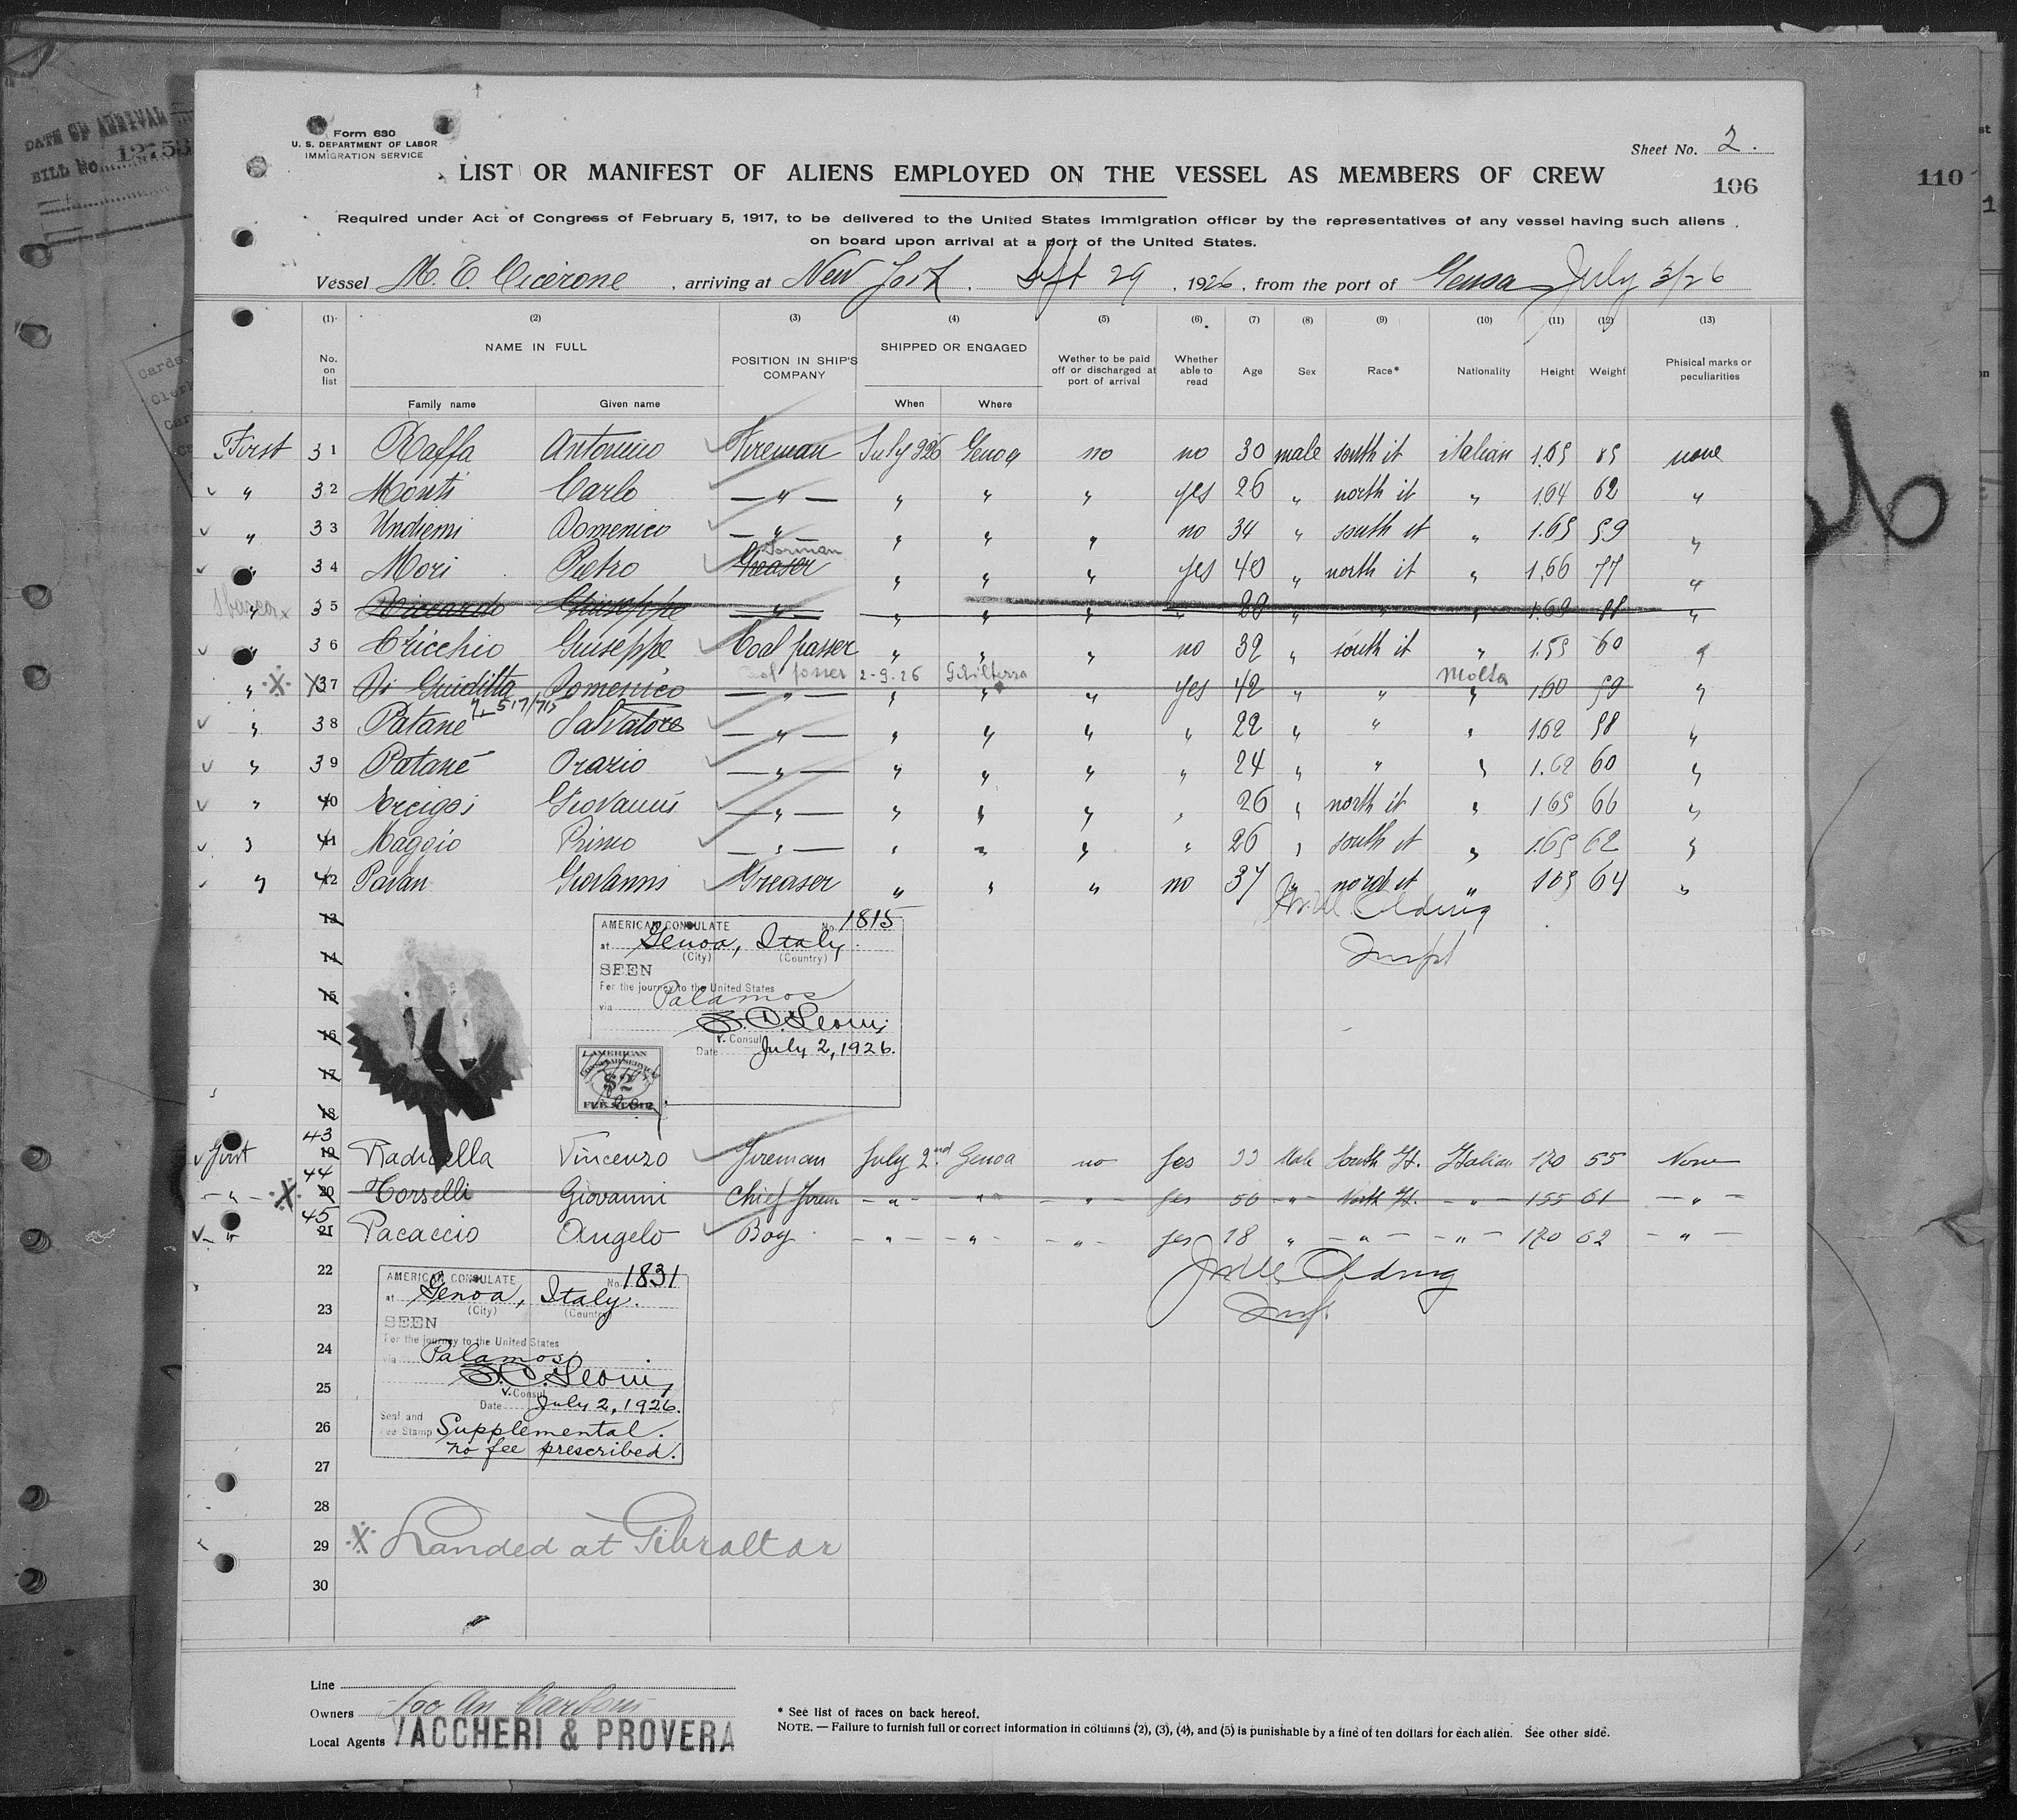 DATE OF ARRIVAL
BILL No. 12753
Form 630
U. S. DEPARTMENT OF LABOR
IMMIGRATION SERVICE
Sheet No. 2.
LIST OR MANIFEST OF ALIENS EMPLOYED ON THE VESSEL AS MEMBERS OF CREW
106
110
Required under Act of Congress of February 5, 1917, to be delivered to the United States Immigration officer by the representatives of any vessel having such aliens
on board upon arrival at a port of the United States.
Vessel M. T. Cicerone, arriving at New York. Sept 29, 1926, from the port of Genoa July 3/26
(1) (2) (3) (4) (5) (6) (7) (8) (9) (10) (11) (12) (13)
No. on list NAME IN FULL Family name Given name POSITION IN SHIP'S COMPANY SHIPPED OR ENGAGED When Where Wether to be paid off or discharged at port of arrival Whether able to read Age Sex Race* Nationality Height Weight Phisical marks or peculiarities
First 31 Raffa Antonino Fireman July 2 926 Genoa no no 30 male south it italian 1.65 none
✓ " 32 Monti Carlo — " — " " " yes 26 " north it " 1.64 62 "
✓ " 33 Undiemi Domenico — " — " " " no 34 " south it " 1.65 59 "
Dorman
✓ " 34 Mori Pietro Greaser " " " yes 40 " north it " 1,66 77 "
" 35 Riccardo Giuseppe " " " " " " " "
✓ " 36 Cricchio Giuseppe Coal passer " " " no 32 " south it " 1.55 60 "
Coal passer 2-9-26 Gibilterra Molta
" 37 Di Guiditta Domenico — " — " " " yes 42 " " " 1.60 59 "
✓ " 38 Patanè Salvatore — " — " " " " 22 " " " 1.62 58 "
✓ " 39 Patanè Orazio — " — " " " " 24 " " " 1.62 60 "
✓ " 40 Giovanni — " — " " " " 26 " north it " 1.65 66 "
✓ " 41 Maggio Primo — " — " " " " 26 " south it " 1.65 62 "
✓ " 42 Pavan Giovanni Greaser " " " no 37 " nord it " 1.65 64 "
13
14
15
16
17
18
AMERICAN CONSULATE No. 1815
at Genoa, Italy.
(City) (Country)
SEEN
For the journey to the United States
via Palamos
V. Consul
Date July 2, 1926.
AMERICAN
$2
FEE STAMP
Inspt
43
✓ First 19 Radicella Vincenzo Fireman July 2nd Genoa no yes 33 Male South It. Italian 170 55 None
44
20 Torselli Giovanni Chief Firem — " — — " — — " — yes 50 — " — North It. — " — 155 61 — " —
45
✓ " 21 Pacaccio Angelo Boy — " — — " — — " — yes 18 " — " — — " — 170 62 — " —
22
23
24
25
26
27
28
AMERICAN CONSULATE No. 1831
at Genoa, Italy.
(City) (Country)
SEEN
For the journey to the United States
via Palamos
V. Consul
Date July 2, 1926.
Seal and
Fee Stamp Supplemental.
no fee prescribed.
29 ※ Landed at Gibraltar
30
Line
Owners
Local Agents VACCHERI & PROVERA
* See list of races on back hereof.
NOTE. — Failure to furnish full or correct information in columns (2), (3), (4), and (5) is punishable by a fine of ten dollars for each alien. See other side.